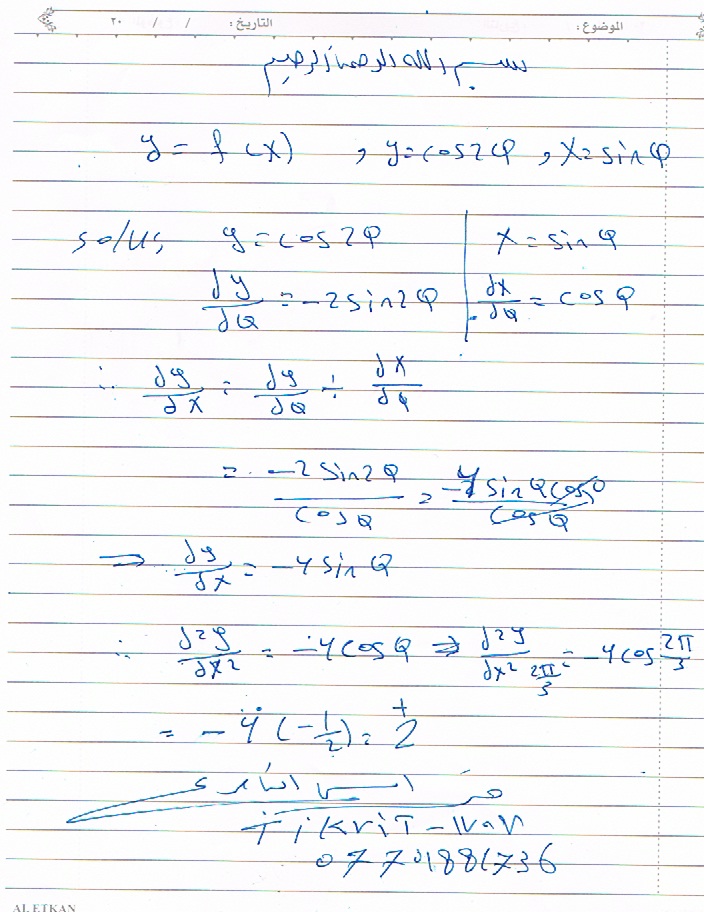 الموضوع: التاريخ: / / ٢٠
بسم الله الرحمن الرحيم
y = f(x) , y = cos2φ , x = sinφ
y = cos2φ | x = sinφ
dy/dφ = -2sin2φ | dx/dφ = cosφ
∴ dy/dx = dy/dφ ÷ dx/dφ
= -2sin2φ/cosφ = -4sinφcosφ/cosφ
⇒ dy/dx = -4sinφ
∴ d²y/dx² = -4cosφ ⇒ d²y/dx² 2π/3 = -4cos 2π/3
= -4(-1/2) = +2
07701881736
AL ETKAN